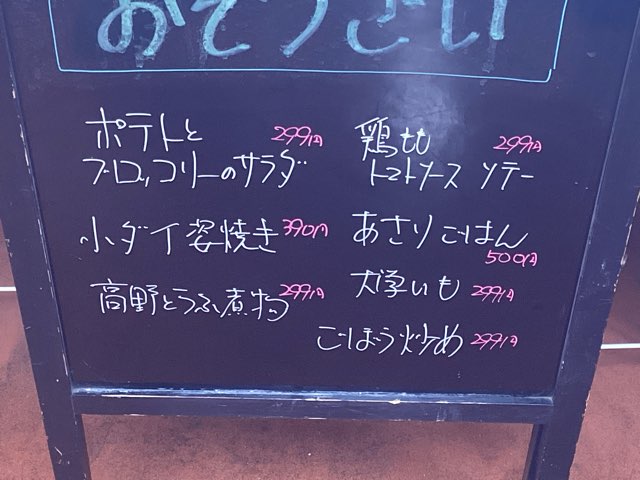 おそうざい
ポテトと
ブロッコリーのサラダ 299円
小ダイ姿焼き 390円
高野とうふ煮物 299円
鶏もも
トマトソース ソテー 299円
あさりごはん
500円
大学いも 299円
ごぼう炒め 299円